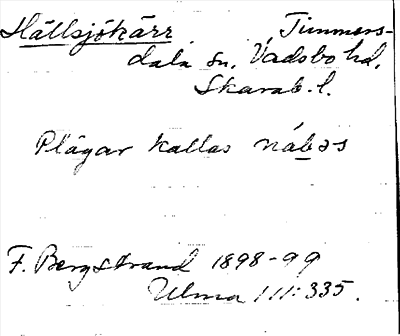 Hällsjökärr Timmers-
dala sn. Vadsbo hd.
Skarab. l.
Plågar kallas nábəs
F. Bergstrand 1898-99
Ulma 111:335.